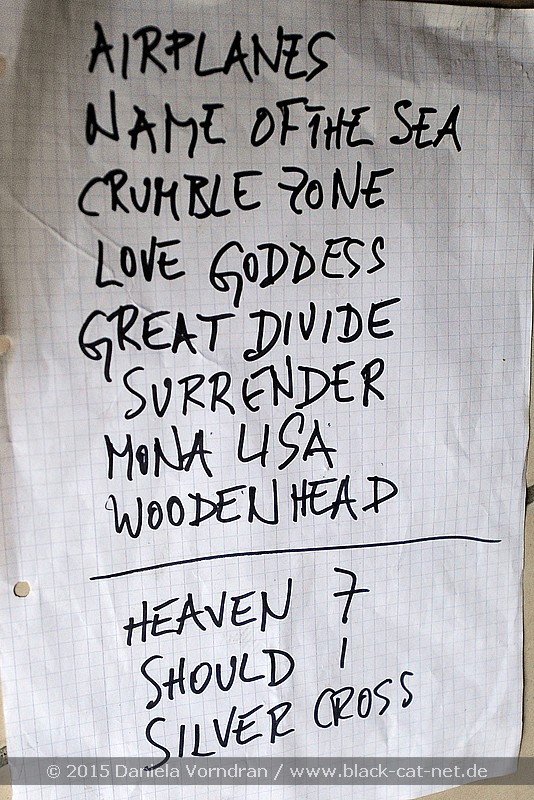 AIRPLANES
NAME OF THE SEA
CRUMBLE ZONE
LOVE GODDESS
GREAT DIVIDE
SURRENDER
MONA LISA
WOODENHEAD
HEAVEN 7
SHOULD I
SILVER CROSS
© 2015 Daniela Vorndran / www.black-cat-net.de